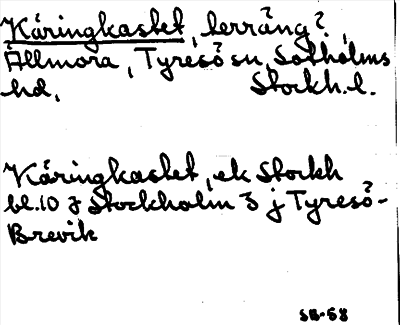 Käringkastet, terräng?,
Ällmora, Tyresö sn, Sotholms
hd, Stockh. l.
Käringkastet, ek Stockh
bl. 10 J Stockholm 3 j Tyresö-
Brevik
SB-58